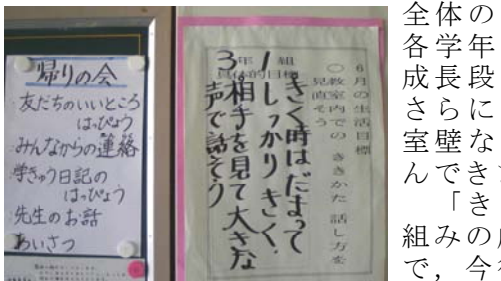 帰りの会
・友だちのいいところ
はっぴょう
・みんなからの連絡
・学きゅう日記の
はっぴょう
・先生のお話
・あいさつ
6月の生活目標
○教室内での ききかた 話し方を
見直そう
3年 1組
具体的目標
きく時はだまって
しっかりきく。
相手を見て大きな
声で話そう
全体の
各学年
成長段
さらに
室壁な
んでき
「き
組みの
で，今